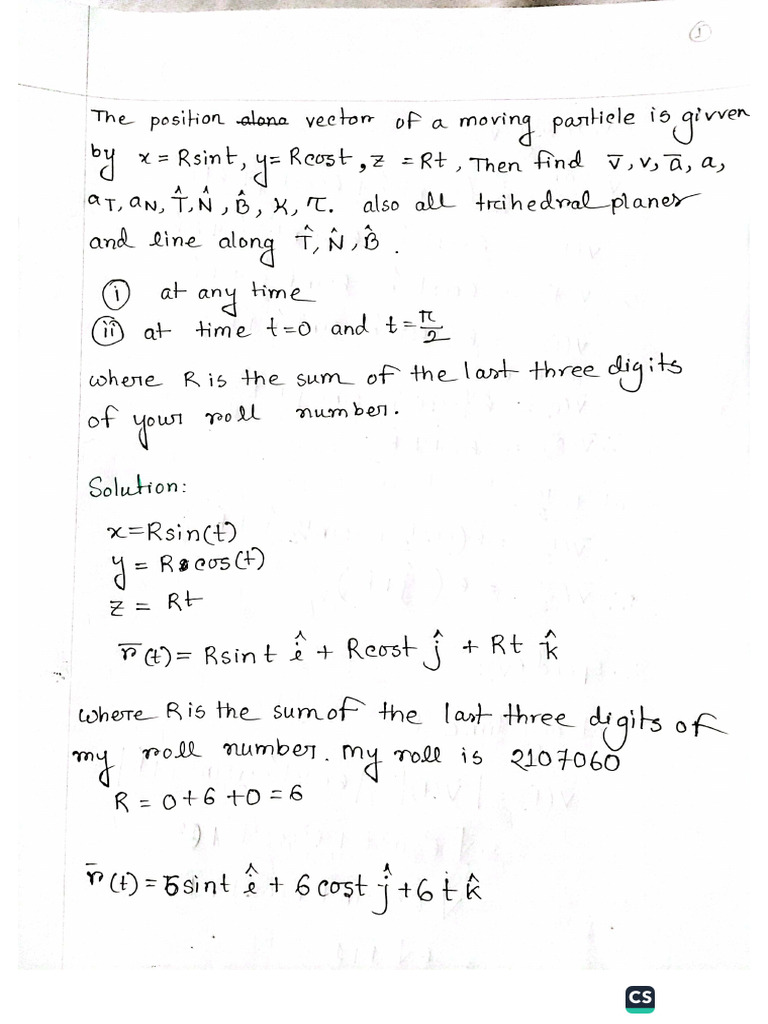 1
The position alana vector of a moving particle is givven
by x = Rsint, y= Rcost, z = Rt, Then find v̅, v, a̅, a,
aT, aN, T̂, N̂, B̂, K, τ. also all trihedral planes
and line along T̂, N̂, B̂.
(i) at any time
(ii) at time t=0 and t=π/2
where R is the sum of the last three digits
of your roll number.
Solution:
x=Rsin(t)
y = Rcos(t)
z = Rt
r̅(t)= Rsint î + Rcost ĵ + Rt k̂
where R is the sum of the last three digits of
my roll number. My roll is 2107060
R = 0+6+0=6
r̅(t)=6sint î + 6cost ĵ+6t k̂
CS